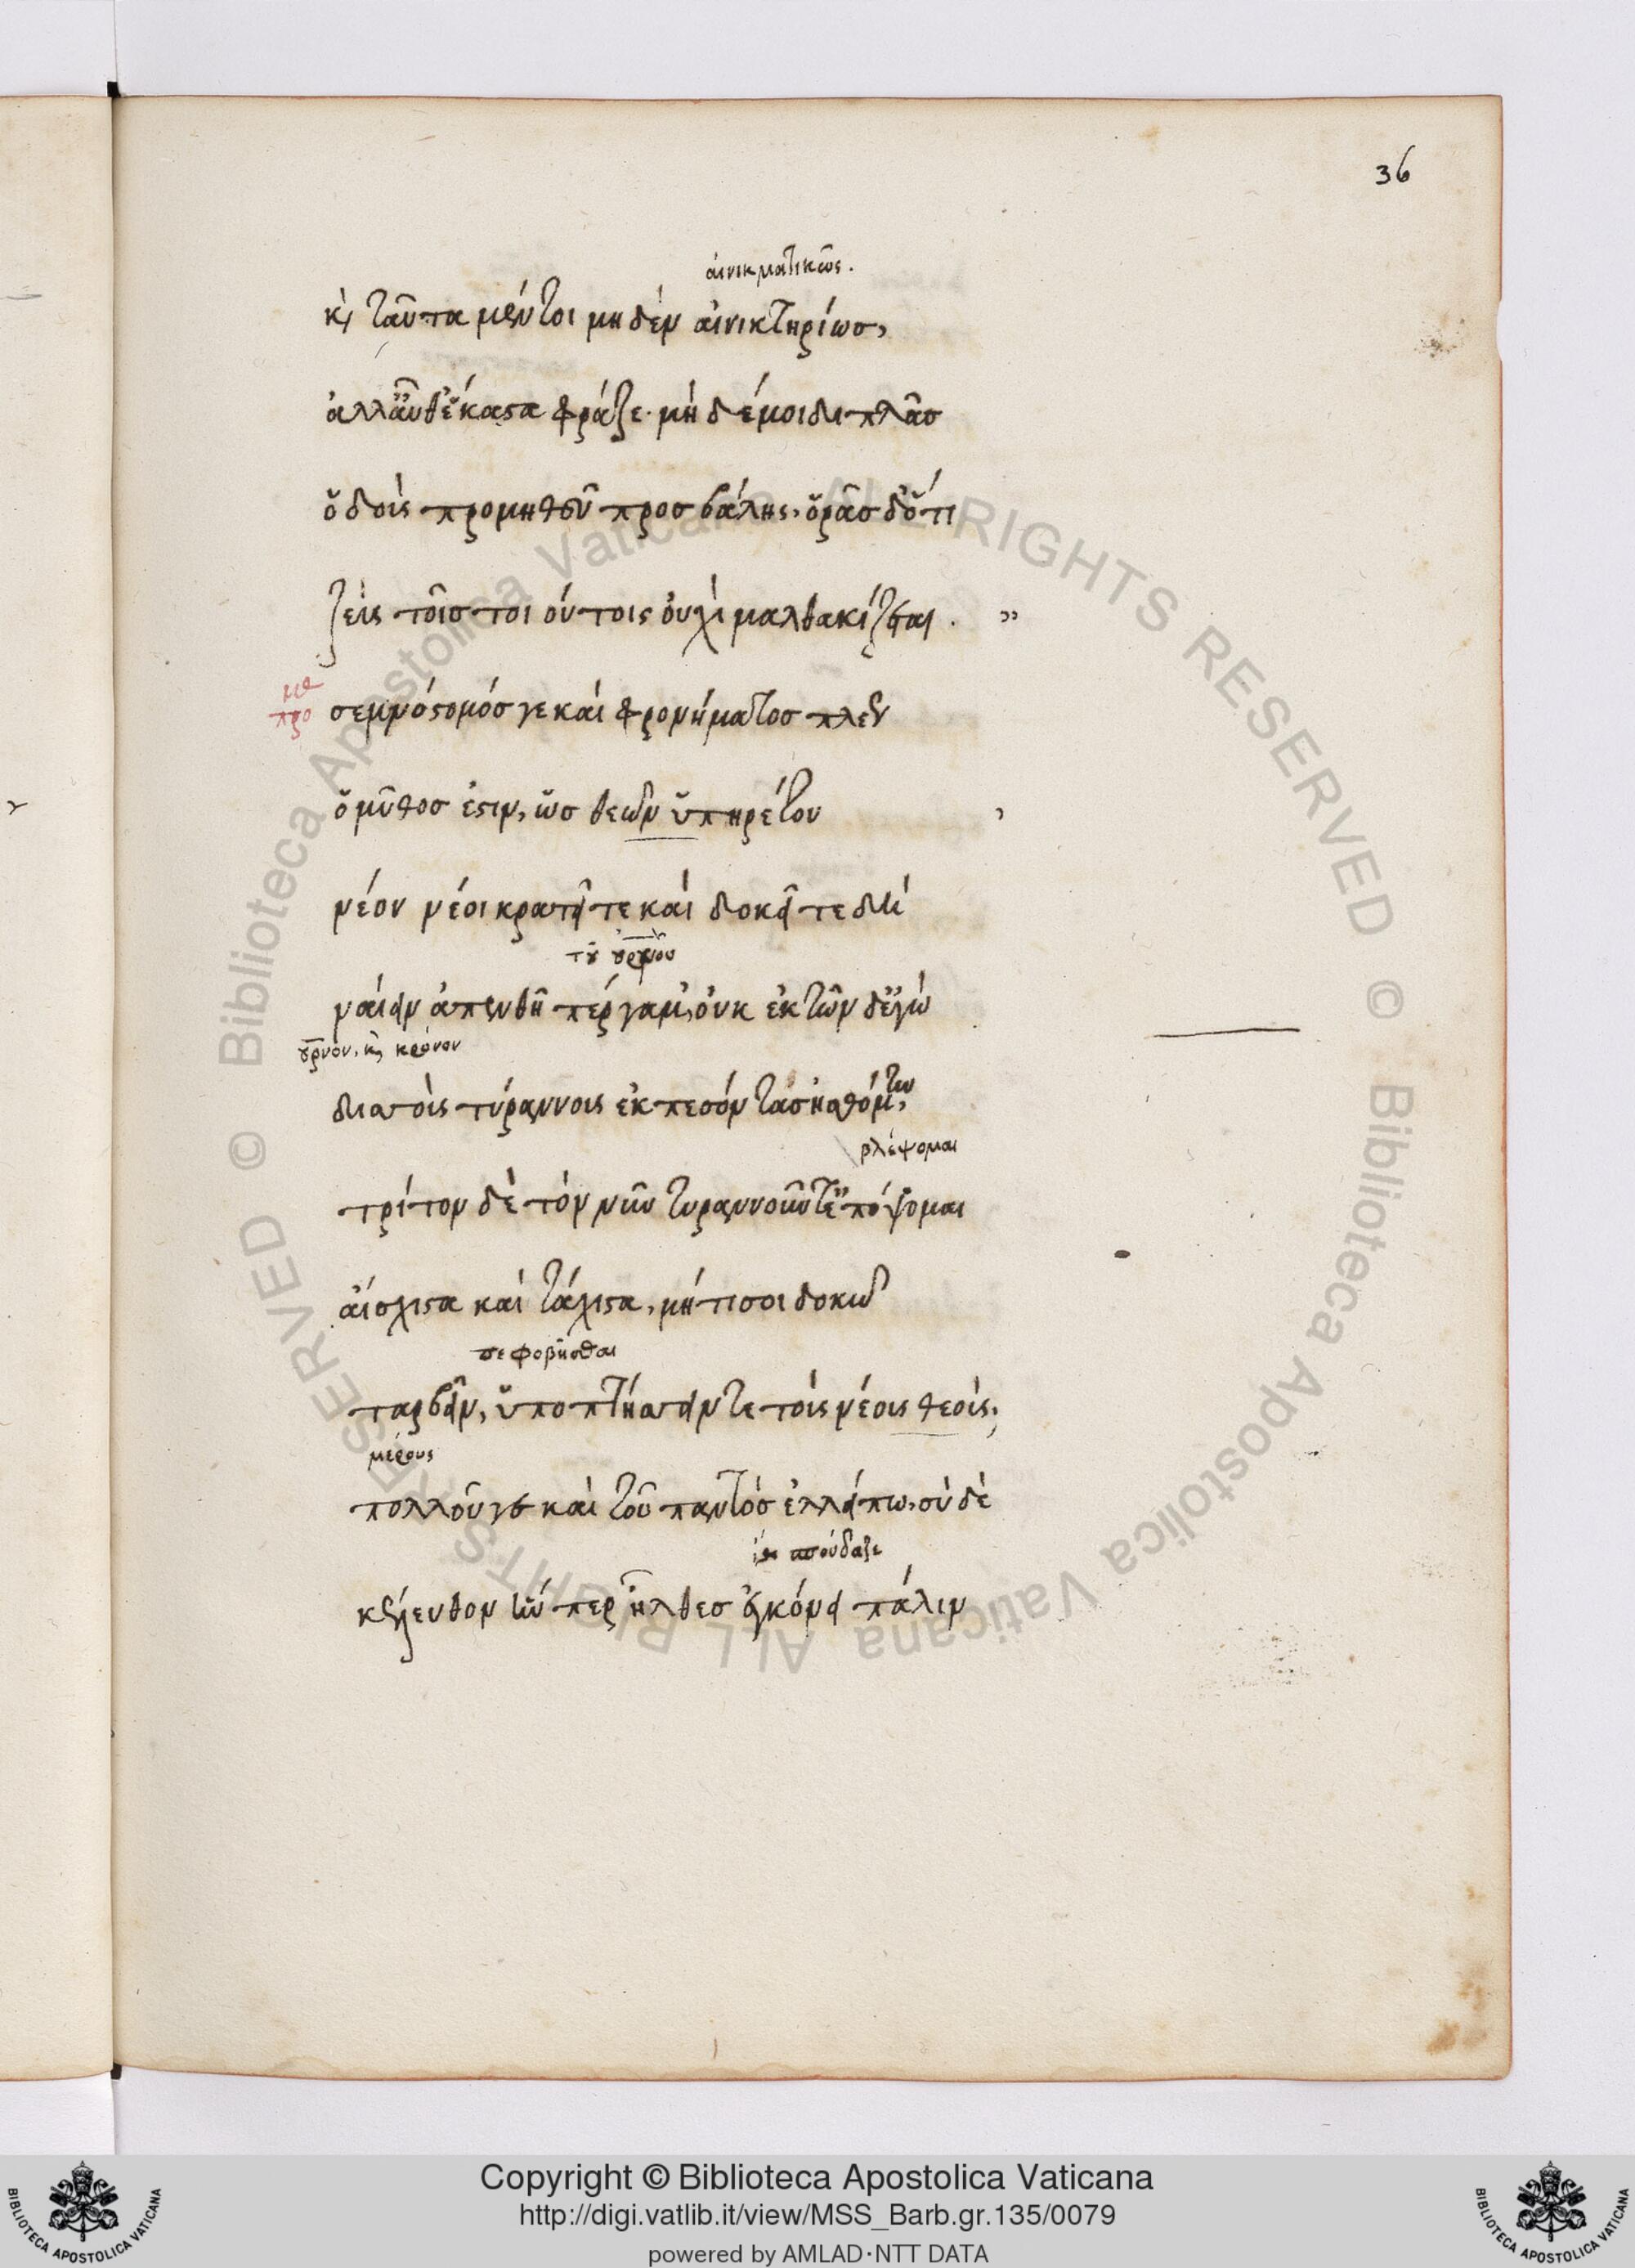 36
αἰνικματικῶς.
κ, ταῦτα μέντοι μηδὲν αἰνικτηρίως,
ἀλλ' αὔθ' ἕκαστα φράζε· μὴ δέ μοι διπλᾶσ
ὁδοὺς προμηθεῦ προσβάλης· ὁρᾶσ δ' ὅτι
ζεὺς τοῖσ τοιούτοις οὐχὶ μαλθακίζεται. "
προ σεμνόστομόσ γε καὶ φρονήματοσ πλέως
ὁ μῦθοσ ἐστιν, ὡσ θεῶν ὑπηρέτου
νέον νέοι κρατεῖτε καὶ δοκεῖτε δὴ
τοῦ οὐρανοῦ
ναίειν ἀπενθῆ πέργαμ', οὐκ ἐκ τῶνδ' ἐγὼ
οὐρανὸν, καὶ κρόνον
δισσοὺς τυράννους ἐκπεσόντασ ἠσθόμην,
βλέψομαι
τρίτον δὲ τὸν νῦν τυραννοῦντ' ἐπόψομαι
αἴσχιστα καὶ τάχιστα, μή τι σοι δοκῶ
πεφοβῆσθαι
ταρβεῖν, ὑποπτήσσειν τε τοὺς νέους θεούς;
μέρους
πολλοῦ γε καὶ τοῦ παντὸσ ἐλλείπω, σὺ δὲ
σπούδαζε
κέλευθον ἥν περ ἦλθεσ ἐγκόνει πάλιν
Copyright © Biblioteca Apostolica Vaticana
http://digi.vatlib.it/view/MSS_Barb.gr.135/0079
powered by AMLAD·NTT DATA
BIBLIOTECA APOSTOLICA VATICANA
BIBLIOTECA APOSTOLICA VATICANA
© Biblioteca Apostolica Vaticana ALL RIGHTS RESERVED © Biblioteca Apostolica Vaticana ALL RIGHTS RESERVED